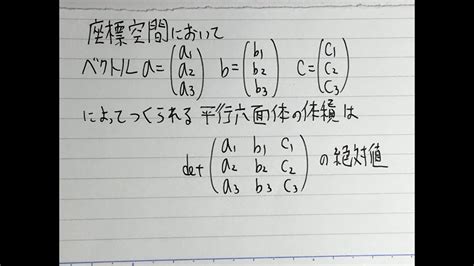 座標空間において
ベクトル a=(a1 a2 a3) b=(b1 b2 b3) c=(c1 c2 c3)
によってつくられる平行六面体の体積は
det(a1 b1 c1
a2 b2 c2
a3 b3 c3) の絶対値